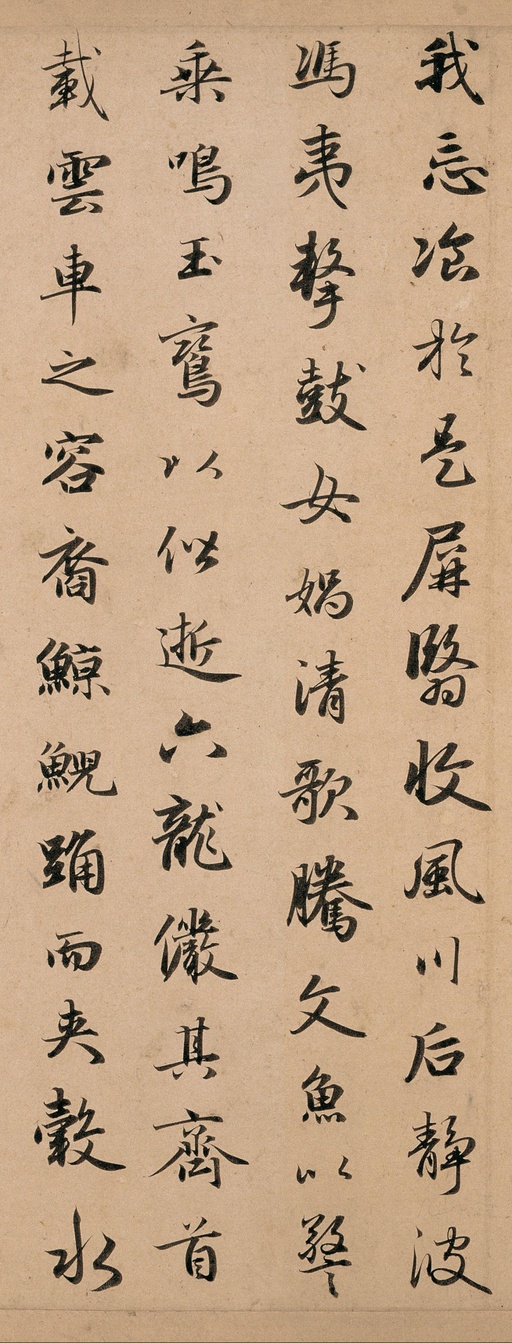 我忘湌於是屏翳收風川后静波
馮夷擊鼓女媧清歌騰文魚以警
乗鳴玉鸞以偕逝六龍儼其齊首
載雲車之容裔鯨鯢踊而夾轂水